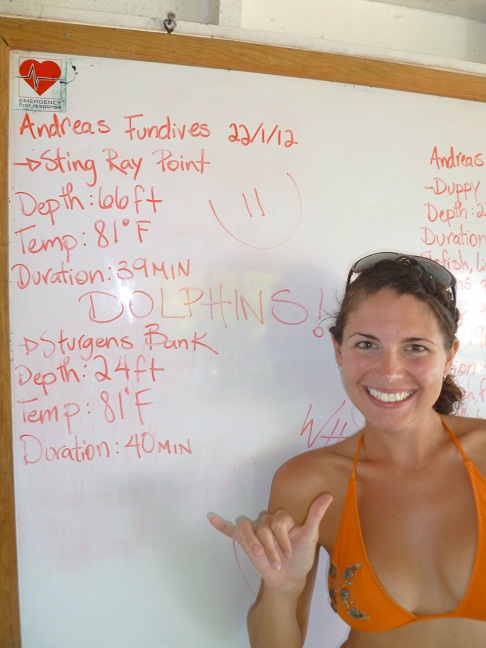 EMERGENCY
first response
Andreas Fundives 22/1/12
→Sting Ray Point
Depth: 66ft
Temp: 81°F
Duration: 39MIN
DOLPHINS!
→Sturgens Bank
Depth: 24ft
Temp: 81°F
Duration: 40MIN
Andreas
→Duppy
Depth: 2
Duration